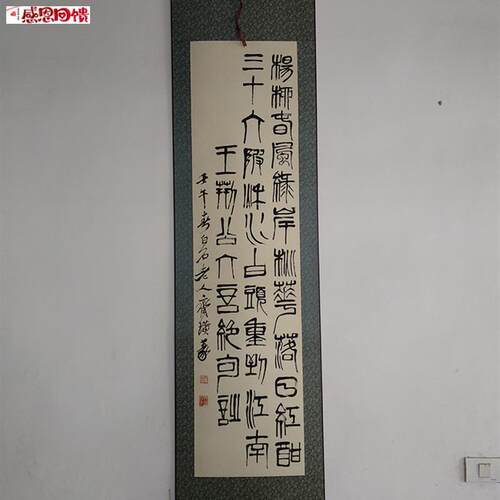 感恩回馈
楊柳春風綠岸桃華落日紅酣
三十六陂流水白頭重到江南
王荊公六言絕句
壬午春白石老人齊璜篆